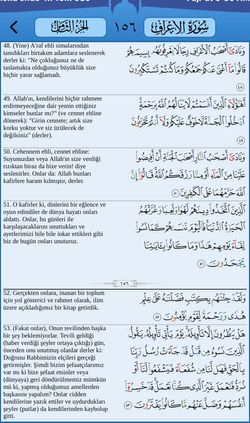 سورة الأعراف
١٥٦
الجزء الثامن
48. (Yine) A'raf ehli simalarından
tanıdıkları birtakım adamlara seslenerek
derler ki: "Ne çokluğunuz ne de
taslamakta olduğunuz büyüklük size
hiçbir yarar sağlamadı.
وَنَادَىٰ أَصْحَابُ الْأَعْرَافِ رِجَالًا يَعْرِفُونَهُمْ بِسِيمَاهُمْ
قَالُوا مَا أَغْنَىٰ عَنْكُمْ جَمْعُكُمْ وَمَا كُنْتُمْ تَسْتَكْبِرُونَ
٤٨
49. Allah'ın, kendilerini hiçbir rahmete
erdirmeyeceğine dair yemin ettiğiniz
kimseler bunlar mı?" (ve cennet ehline
dönerek): "Girin cennete; artık size
korku yoktur ve siz üzülecek de
değilsiniz" (derler).
أَهَٰؤُلَاءِ الَّذِينَ أَقْسَمْتُمْ لَا يَنَالُهُمُ اللَّهُ بِرَحْمَةٍ
ادْخُلُوا الْجَنَّةَ لَا خَوْفٌ عَلَيْكُمْ وَلَا أَنْتُمْ تَحْزَنُونَ
٤٩
50. Cehennem ehli, cennet ehline:
Suyunuzdan veya Allah'ın size verdiği
rızıktan biraz da bize verin! diye
seslenirler. Onlar da: Allah bunları
kafirlere haram kılmıştır, derler.
وَنَادَىٰ أَصْحَابُ النَّارِ أَصْحَابَ الْجَنَّةِ أَنْ أَفِيضُوا
عَلَيْنَا مِنَ الْمَاءِ أَوْ مِمَّا رَزَقَكُمُ اللَّهُ قَالُوا إِنَّ
اللَّهَ حَرَّمَهُمَا عَلَى الْكَافِرِينَ ٥٠
51. O kafirler ki, dinlerini bir eğlence ve
oyun edindiler de dünya hayatı onları
aldattı. Onlar, bu günleri ile
karşılaşacaklarını unuttukları ve
ayetlerimizi bile bile inkar ettikleri gibi
biz de bugün onları unuturuz.
الَّذِينَ اتَّخَذُوا دِينَهُمْ لَهْوًا وَلَعِبًا وَغَرَّتْهُمُ
الْحَيَاةُ الدُّنْيَا فَالْيَوْمَ نَنْسَاهُمْ كَمَا نَسُوا
لِقَاءَ يَوْمِهِمْ هَٰذَا وَمَا كَانُوا بِآيَاتِنَا
يَجْحَدُونَ ٥١
١٥٦
52. Gerçekten onlara, inanan bir toplum
için yol gösterici ve rahmet olarak, ilim
üzere açıkladığımız bir kitap getirdik.
وَلَقَدْ جِئْنَاهُمْ بِكِتَابٍ فَصَّلْنَاهُ عَلَىٰ عِلْمٍ
هُدًى وَرَحْمَةً لِقَوْمٍ يُؤْمِنُونَ ٥٢
53. (Fakat onlar), Onun tevilinden başka
bir şey beklemiyorlar. Tevili geldiği
(haber verdiği şeyler ortaya çıktığı) gün,
önceden onu unutmuş olanlar derler ki:
Doğrusu Rabbimizin elçileri gerçeği
getirmişler. Şimdi bizim şefaatçılarımız
var mı ki bize şefaat etsinler veya
(dünyaya) geri döndürülmemiz mümkün
mü ki, yapmış olduğumuz amellerden
başkasını yapalım? Onlar cidden
kendilerine yazık ettiler ve uydurdukları
şeyler (putlar) da kendilerinden kaybolup
gitti.
هَلْ يَنْظُرُونَ إِلَّا تَأْوِيلَهُ يَوْمَ يَأْتِي تَأْوِيلُهُ يَقُولُ
الَّذِينَ نَسُوهُ مِنْ قَبْلُ قَدْ جَاءَتْ رُسُلُ رَبِّنَا
بِالْحَقِّ فَهَلْ لَنَا مِنْ شُفَعَاءَ فَيَشْفَعُوا لَنَا أَوْ
نُرَدُّ فَنَعْمَلَ غَيْرَ الَّذِي كُنَّا نَعْمَلُ قَدْ خَسِرُوا
أَنْفُسَهُمْ وَضَلَّ عَنْهُمْ مَا كَانُوا يَفْتَرُونَ ٥٣